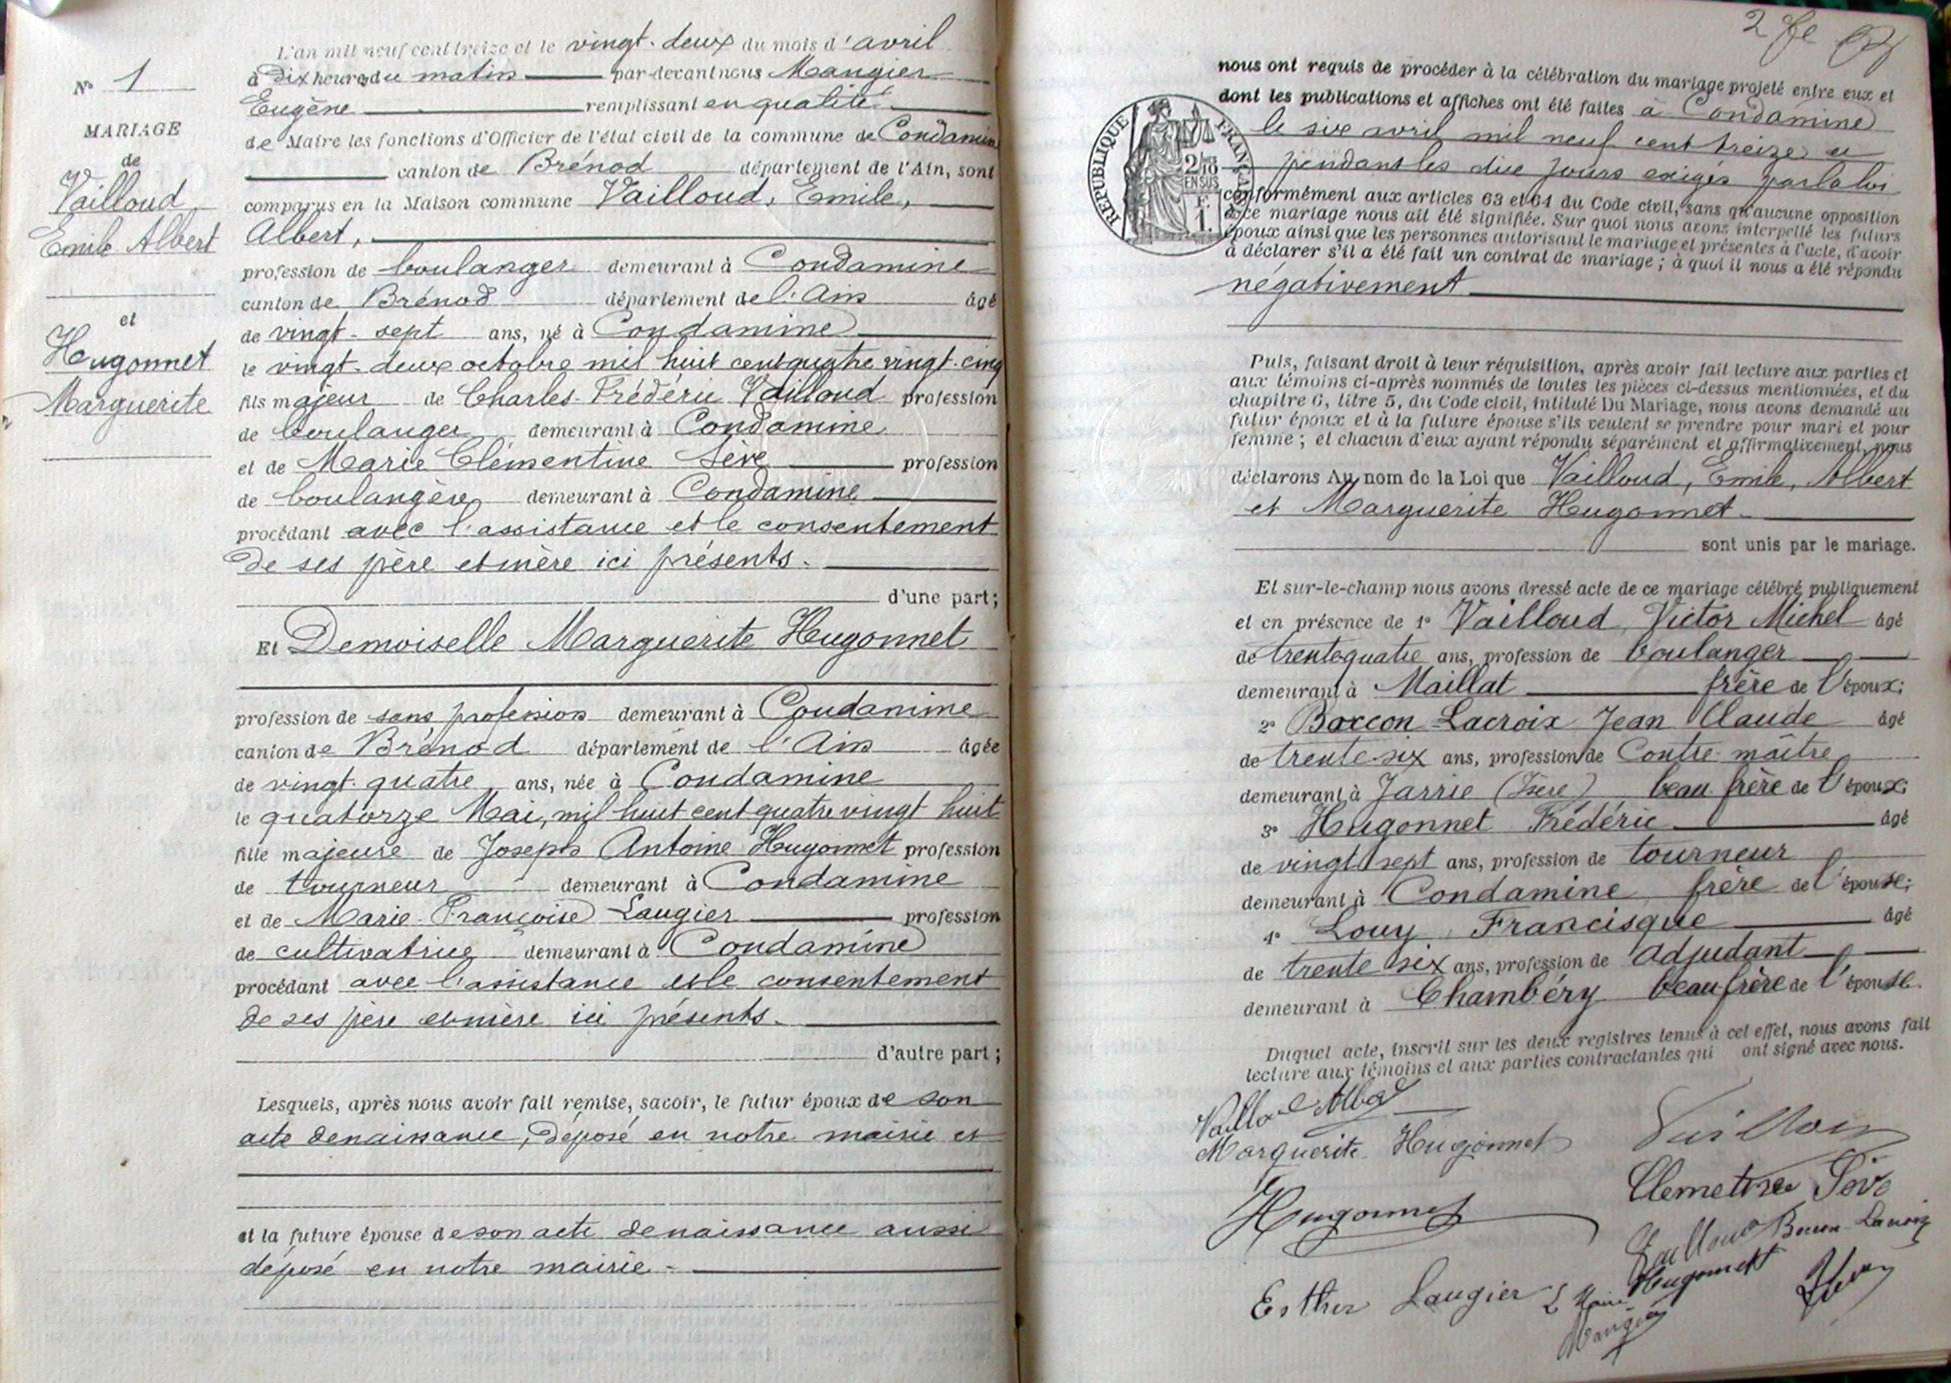 N° 1
MARIAGE
de
Vailloud
Emile Albert
et
Hugonnet
Marguerite
L'an mil neuf cent treize et le vingt-deux du mois d'avril
à dix heures du matin par-devant nous Maugier
Eugène remplissant en qualité
de Maire les fonctions d'Officier de l'état civil de la commune de Condamine
canton de Brénod département de l'Ain, sont
comparus en la Maison commune Vailloud, Emile,
Albert,
profession de boulanger demeurant à Condamine
canton de Brénod département de l'Ain âgé
de vingt-sept ans, né à Condamine
le vingt-deux octobre mil huit cent quatre vingt-cinq
fils majeur de Charles Frédéric Vailloud profession
de boulanger demeurant à Condamine
et de Marie Clémentine Sève profession
de boulangère demeurant à Condamine
procédant avec l'assistance et le consentement
de ses père et mère ici présents.
d'une part;
Et Demoiselle Marguerite Hugonnet
profession de sans profession demeurant à Condamine
canton de Brénod département de l'Ain âgée
de vingt-quatre ans, née à Condamine
le quatorze Mai, mil huit cent quatre vingt huit
fille majeure de Joseph Antoine Hugonnet profession
de tourneur demeurant à Condamine
et de Marie-Françoise Laugier profession
de cultivatrice demeurant à Condamine
procédant avec l'assistance et le consentement
de ses père et mère ici présents.
d'autre part;
Lesquels, après nous avoir fait remise, savoir, le futur époux de son
acte de naissance, déposé en notre mairie et
et la future épouse de son acte de naissance aussi
déposé en notre mairie.
2 fe
nous ont requis de procéder à la célébration du mariage projeté entre eux et
dont les publications et affiches ont été faites à Condamine
le six avril mil neuf cent treize et
pendant les dix jours exigés par la loi
RÉPUBLIQUE FRANÇAISE
2/10 EN SUS
F. 1.
conformément aux articles 63 et 64 du Code civil, sans qu'aucune opposition
à ce mariage nous ait été signifiée. Sur quoi nous avons interpellé les futurs
époux ainsi que les personnes autorisant le mariage et présentes à l'acte, d'avoir
à déclarer s'il a été fait un contrat de mariage; à quoi il nous a été répondu
négativement
Puis, faisant droit à leur réquisition, après avoir fait lecture aux parties et
aux témoins ci-après nommés de toutes les pièces ci-dessus mentionnées, et du
chapitre 6, titre 5, du Code civil, intitulé Du Mariage, nous avons demandé au
futur époux et à la future épouse s'ils veulent se prendre pour mari et pour
femme; et chacun d'eux ayant répondu séparément et affirmativement, nous
déclarons Au nom de la Loi que Vailloud, Emile, Albert
et Marguerite Hugonnet.
sont unis par le mariage.
Et sur-le-champ nous avons dressé acte de ce mariage célébré publiquement
et en présence de 1° Vailloud, Victor Michel âgé
de trente quatre ans, profession de boulanger
demeurant à Maillat frère de l'époux;
2° Boccon-Lacroix Jean Claude âgé
de trente-six ans, profession de Contre-maître
demeurant à Jarrie (Isère) beau frère de l'époux;
3° Hugonnet Frédéric âgé
de vingt sept ans, profession de tourneur
demeurant à Condamine frère de l'épouse;
4° Louy Francisque âgé
de trente six ans, profession de Adjudant
demeurant à Chambéry beau frère de l'épouse.
Duquel acte, inscrit sur les deux registres tenus à cet effet, nous avons fait
lecture aux témoins et aux parties contractantes qui ont signé avec nous.
Vailloud Albert
Marguerite Hugonnet
Vailloud
Hugonnet
Vailloud
Hugonnet
Esther Laugier